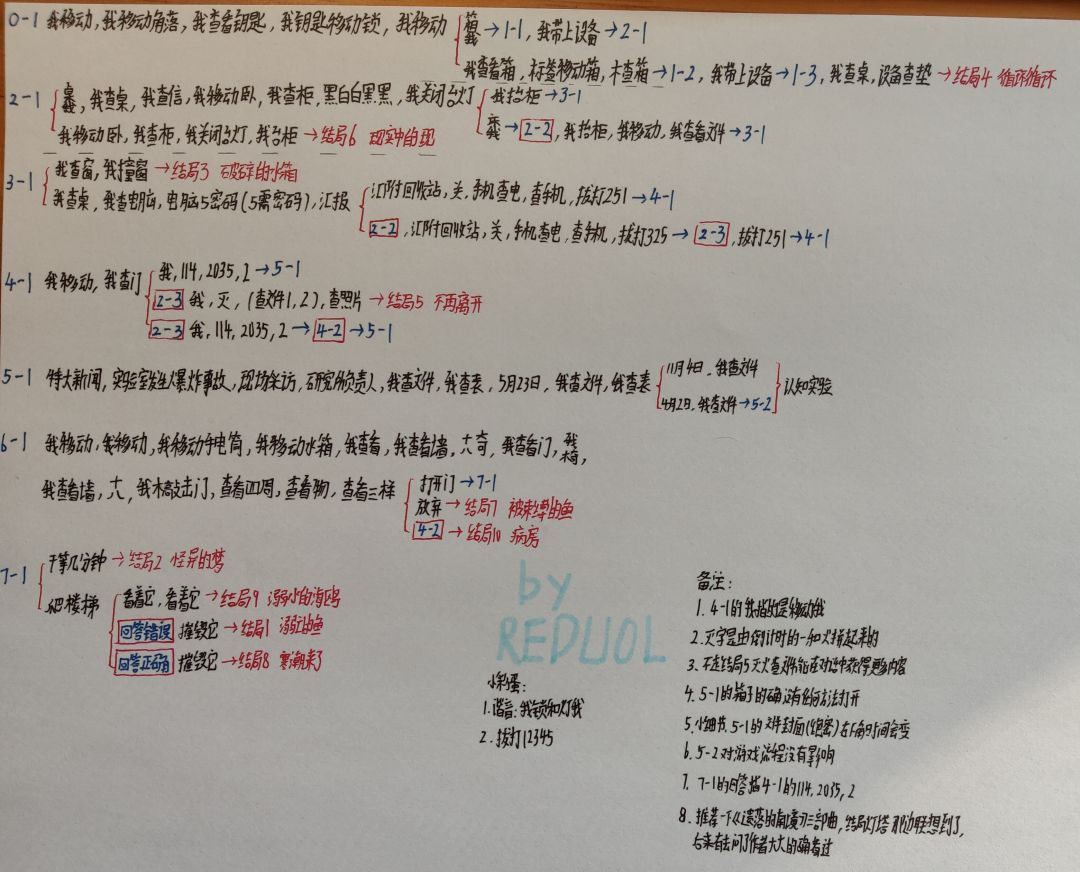 0-1 我移动,我移动角落,我查看钥匙,我钥匙移动锁,我移动
箱我→1-1,我带上设备→2-1
我查看箱,标签移动箱,木查箱→1-2,我带上设备→1-3,我查桌,设备查垫→结局4 循环循环
2-1
我,我查桌,我查信,我移动卧,我查柜,黑白白黑黑,我关闭台灯
我抬柜→3-1
我→2-2,我抬柜,我移动,我查看文件→3-1
我移动卧,我查柜,我关闭台灯,我台柜→结局6 现实中的现
3-1
我查窗,我撞窗→结局3 破碎的水箱
我查桌,我查电脑,电脑5密码(5需密码),汇报
汇附回收站,关,手机查电,查手机,拨打251→4-1
2-2,汇附回收站,关,手机查电,查手机,拨打325→2-3,拨打251→4-1
4-1 我移动,我查门
我,114,2035,2→5-1
2-3 我,灭,(查文件1,2),查照片→结局5 不再离开
2-3 我,114,2035,2→4-2→5-1
5-1 特大新闻,实验室发生爆炸事故,现场采访,研究所负责人,我查文件,我查表,5月23日,我查文件,我查表
11月4日,我查文件
4月2日,我查文件→5-2
认知实验
6-1 我移动,我移动,我移动手电筒,我移动水箱,我查看,我查看墙,六奇,我查看门,
我查看墙,六,我木敲击门,查看四周,查看物,查看三样
打开门→7-1
放弃→结局7 被束缚的鱼
4-2→结局10 病房
7-1
干等几分钟→结局2 怪异的梦
爬楼梯
看着它,看着它→结局9 溺水的海鸥
回答错误 摧毁它→结局1 溺亡的鱼
回答正确 摧毁它→结局8 寒潮来了
by
REDUOL
小彩蛋:
1.谐音:我锁和灯我
2.拨打12345
备注:
1.4-1的我指的是移动我
2.灭字是由倒计时的一和火拼起来的
3.不走结局5灭火查文件能在对话中获得更多内容
4.5-1的箱子的确没有任何方法打开
5.小细节,5-1的文件封面(绝密)在不同时间会变
6.5-2对游戏流程没有影响
7.7-1的回答指4-1的114,2035,2
8.推荐一下《遗落的南境》三部曲,结局灯塔那边联想到了,
后来去问了作者大大的确看过